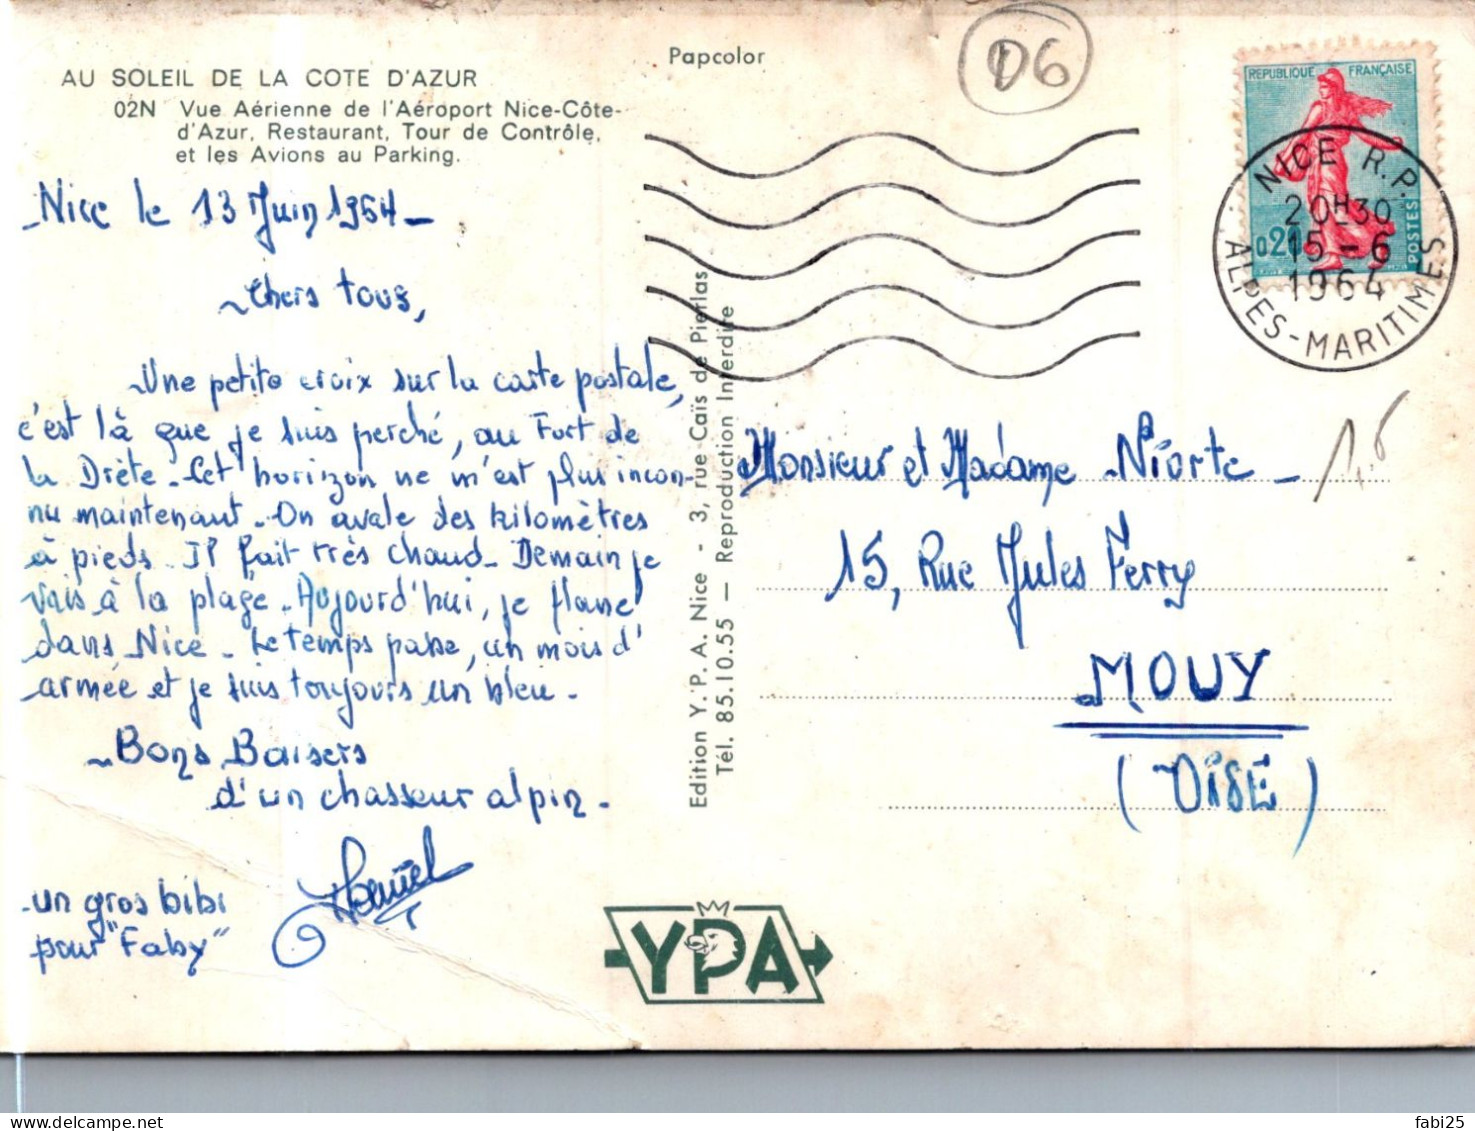 AU SOLEIL DE LA COTE D'AZUR
02N Vue Aérienne de l'Aéroport Nice-Côte-
d'Azur, Restaurant, Tour de Contrôle,
et les Avions au Parking.
Nice le 13 Juin 1964 -
Chers tous,
Une petite croix sur la carte postale,
c'est là que je suis perché, au Fort de
la Drète - Cet horizon ne m'est plus incon-
nu maintenant - On avale des kilomètres
à pieds. Il fait très chaud - Demain je
vais à la plage. Aujourd'hui, je flane
dans Nice - Le temps passe, un mois d'
armée et je suis toujours un bleu -
Bons Baisers
d'un chasseur alpin -
Daniel
un gros bibi
pour "Faby"
Papcolor
06
REPUBLIQUE FRANÇAISE
0,20
POSTES
NICE R.P.
20H30
15-6
1964
ALPES-MARITIMES
Edition Y.P.A. Nice - 3, rue Caïs de Pierlas
Tél. 85.10.55 — Reproduction Interdite
Monsieur et Madame Niorte -
15, Rue Jules Ferry
MOUY
(OISE)
YPA
fabi25